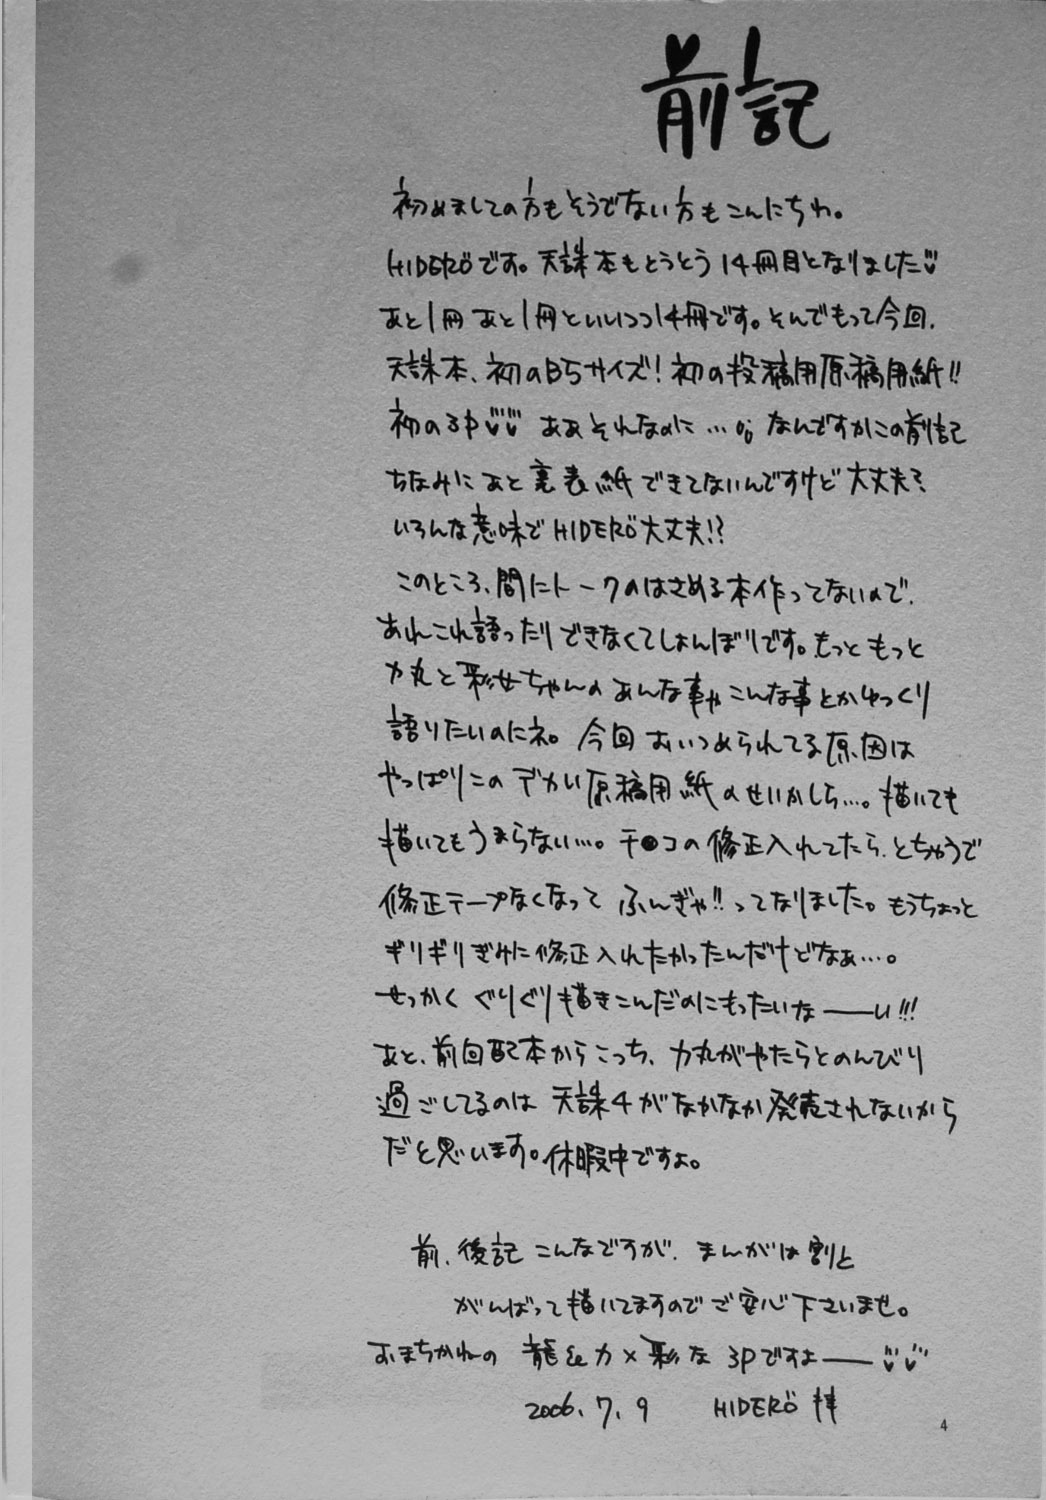 前記
初めましての方もそうでない方もこんにちわ。
HIDEROです。天誅本もとうとう14冊目となりました♡
あと1冊あと1冊といいつつ14冊です。そんでもって今回、
天誅本、初のB5サイズ!初の投稿用原稿用紙!!
初の3P♡♡ ああそれなのに…。なんですかこの前記
ちなみにあと裏表紙できてないんですけど大丈夫?
いろんな意味でHIDERO大丈夫!?
このところ、間にトークのはさめる本作ってないので、
あれこれ語ったりできなくてしょんぼりです。もっともっと
力丸と彩女ちゃんのあんな事やこんな事とかゆっくり
語りたいのにネ。今回おいつめられてる原因は
やっぱりこのデカい原稿用紙のせいかしら…。描いても
描いてもうまらない…。チ●コの修正入れてたら、とちゅうで
修正テープなくなって ふんぎゃ!!ってなりました。もうちょっと
ギリギリぎみに修正入れたかったんだけどなぁ…。
せっかく ぐりぐり描きこんだのにもったいなーーい!!!
あと、前回配本からこっち、力丸がやたらとのんびり
過ごしてるのは 天誅4がなかなか発売されないから
だと思います。休暇中ですよ。
前、後記こんなですが、まんがは割と
がんばって描いてますのでご安心下さいませ。
おまちかねの 龍&力×彩な 3Pですよーー♡♡
2006.7.9 HIDERO 拝
4